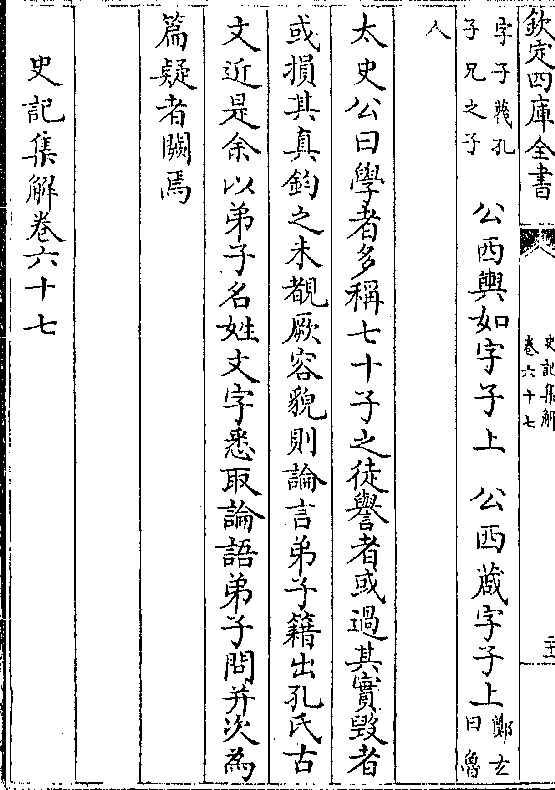 欽定四庫全書
史記集解
卷六十七
二十
字子蔑孔
子兄之子
公西輿如字子上　公西蒧字子上
鄭玄
曰魯
人
太史公曰學者多稱七十子之徒譽者或過其實毀者
或損其真鈞之未覩厥容貌則論言弟子籍出孔氏古
文近是余以弟子名姓文字悉取論語弟子問并次為
篇疑者闕焉
史記集解卷六十七